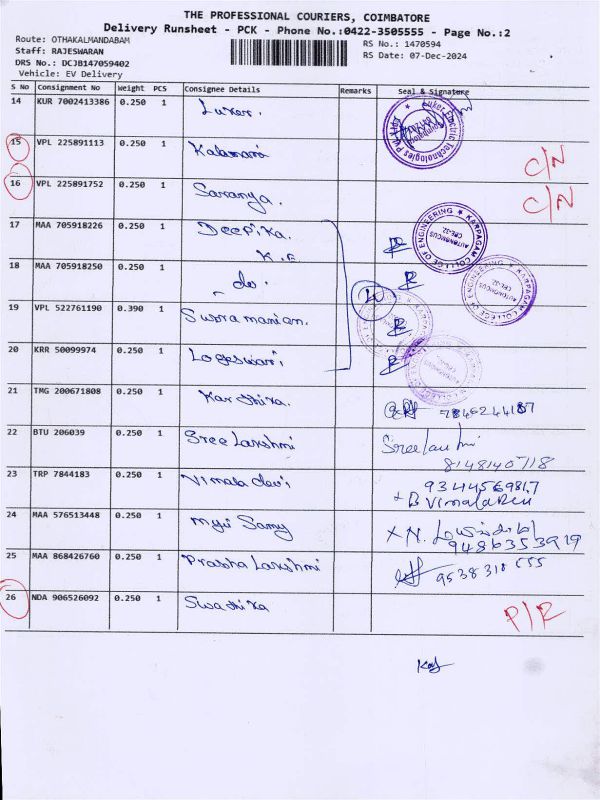 THE PROFESSIONAL COURIERS, COIMBATORE
Delivery Runsheet - PCK - Phone No.:0422-3505555 - Page No.:2
Route: OTHAKALMANDABAM
RS No.: 1470594
Staff: RAJESWARAN
RS Date: 07-Dec-2024
DRS No.: DCJB147059402
Vehicle: EV Delivery
S No Consignment No Weight PCS Consignee Details Remarks Seal & Signature
14 KUR 7002413386 0.250 1 Luker.
15 VPL 225891113 0.250 1 C/N
16 VPL 225891752 0.250 1 Saranya. C/N
17 MAA 705918226 0.250 1 Deepika.
K.E
KARPAGAM COLLEGE OF ENGINEERING
AUTONOMOUS
CBE-32.
18 MAA 705918250 0.250 1 do.
KARPAGAM COLLEGE OF ENGINEERING
AUTONOMOUS
CBE-32.
19 VPL 522761190 0.390 1
20 KRR 50099974 0.250 1 Logeswari
21 TMG 200671808 0.250 1 Karthika.
22 BTU 206039 0.250 1 Sree Lakshmi
8148140718
23 TRP 7844183 0.250 1 Vimala devi
24 MAA 576513448 0.250 1 Samy
9486353919
25 MAA 868426760 0.250 1 Prabha Lakshmi
26 NDA 906526092 0.250 1 Swathika P/R